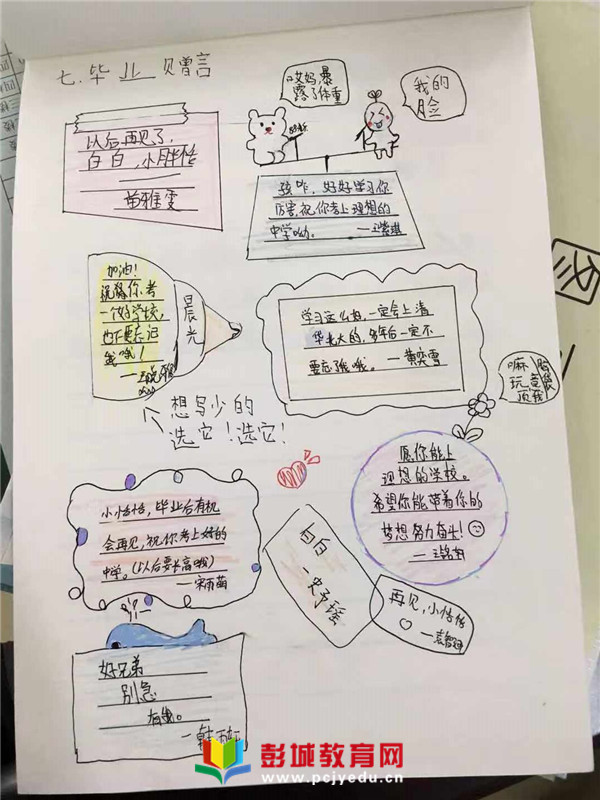 七.毕业赠言
哎妈,暴
露了体重
我的
脸
以后再见了,
白白,小胖怡
苗雅雯
孩咋,好好学习你
厉害,祝你考上理想的
中学呦。
加油!
祝你考
一个好学校,
也不要忘记
我哦!
晨光
学习这么好,一定会上清
华北大的,多年后一定不
要忘了我哦。
—黄奕雪
嘛
玩意
顶我
想写少的
选它!选它!
愿你能上
理想的学校。
希望你能带着你的
梦想努力奋斗!
小怡怡,毕业后有机
会再见,祝你考上好的
中学。(以后要长高哦)
白白
再见,小怡怡
好兄弟
别急
有我。
彭城教育网
www.pcjyedu.cn